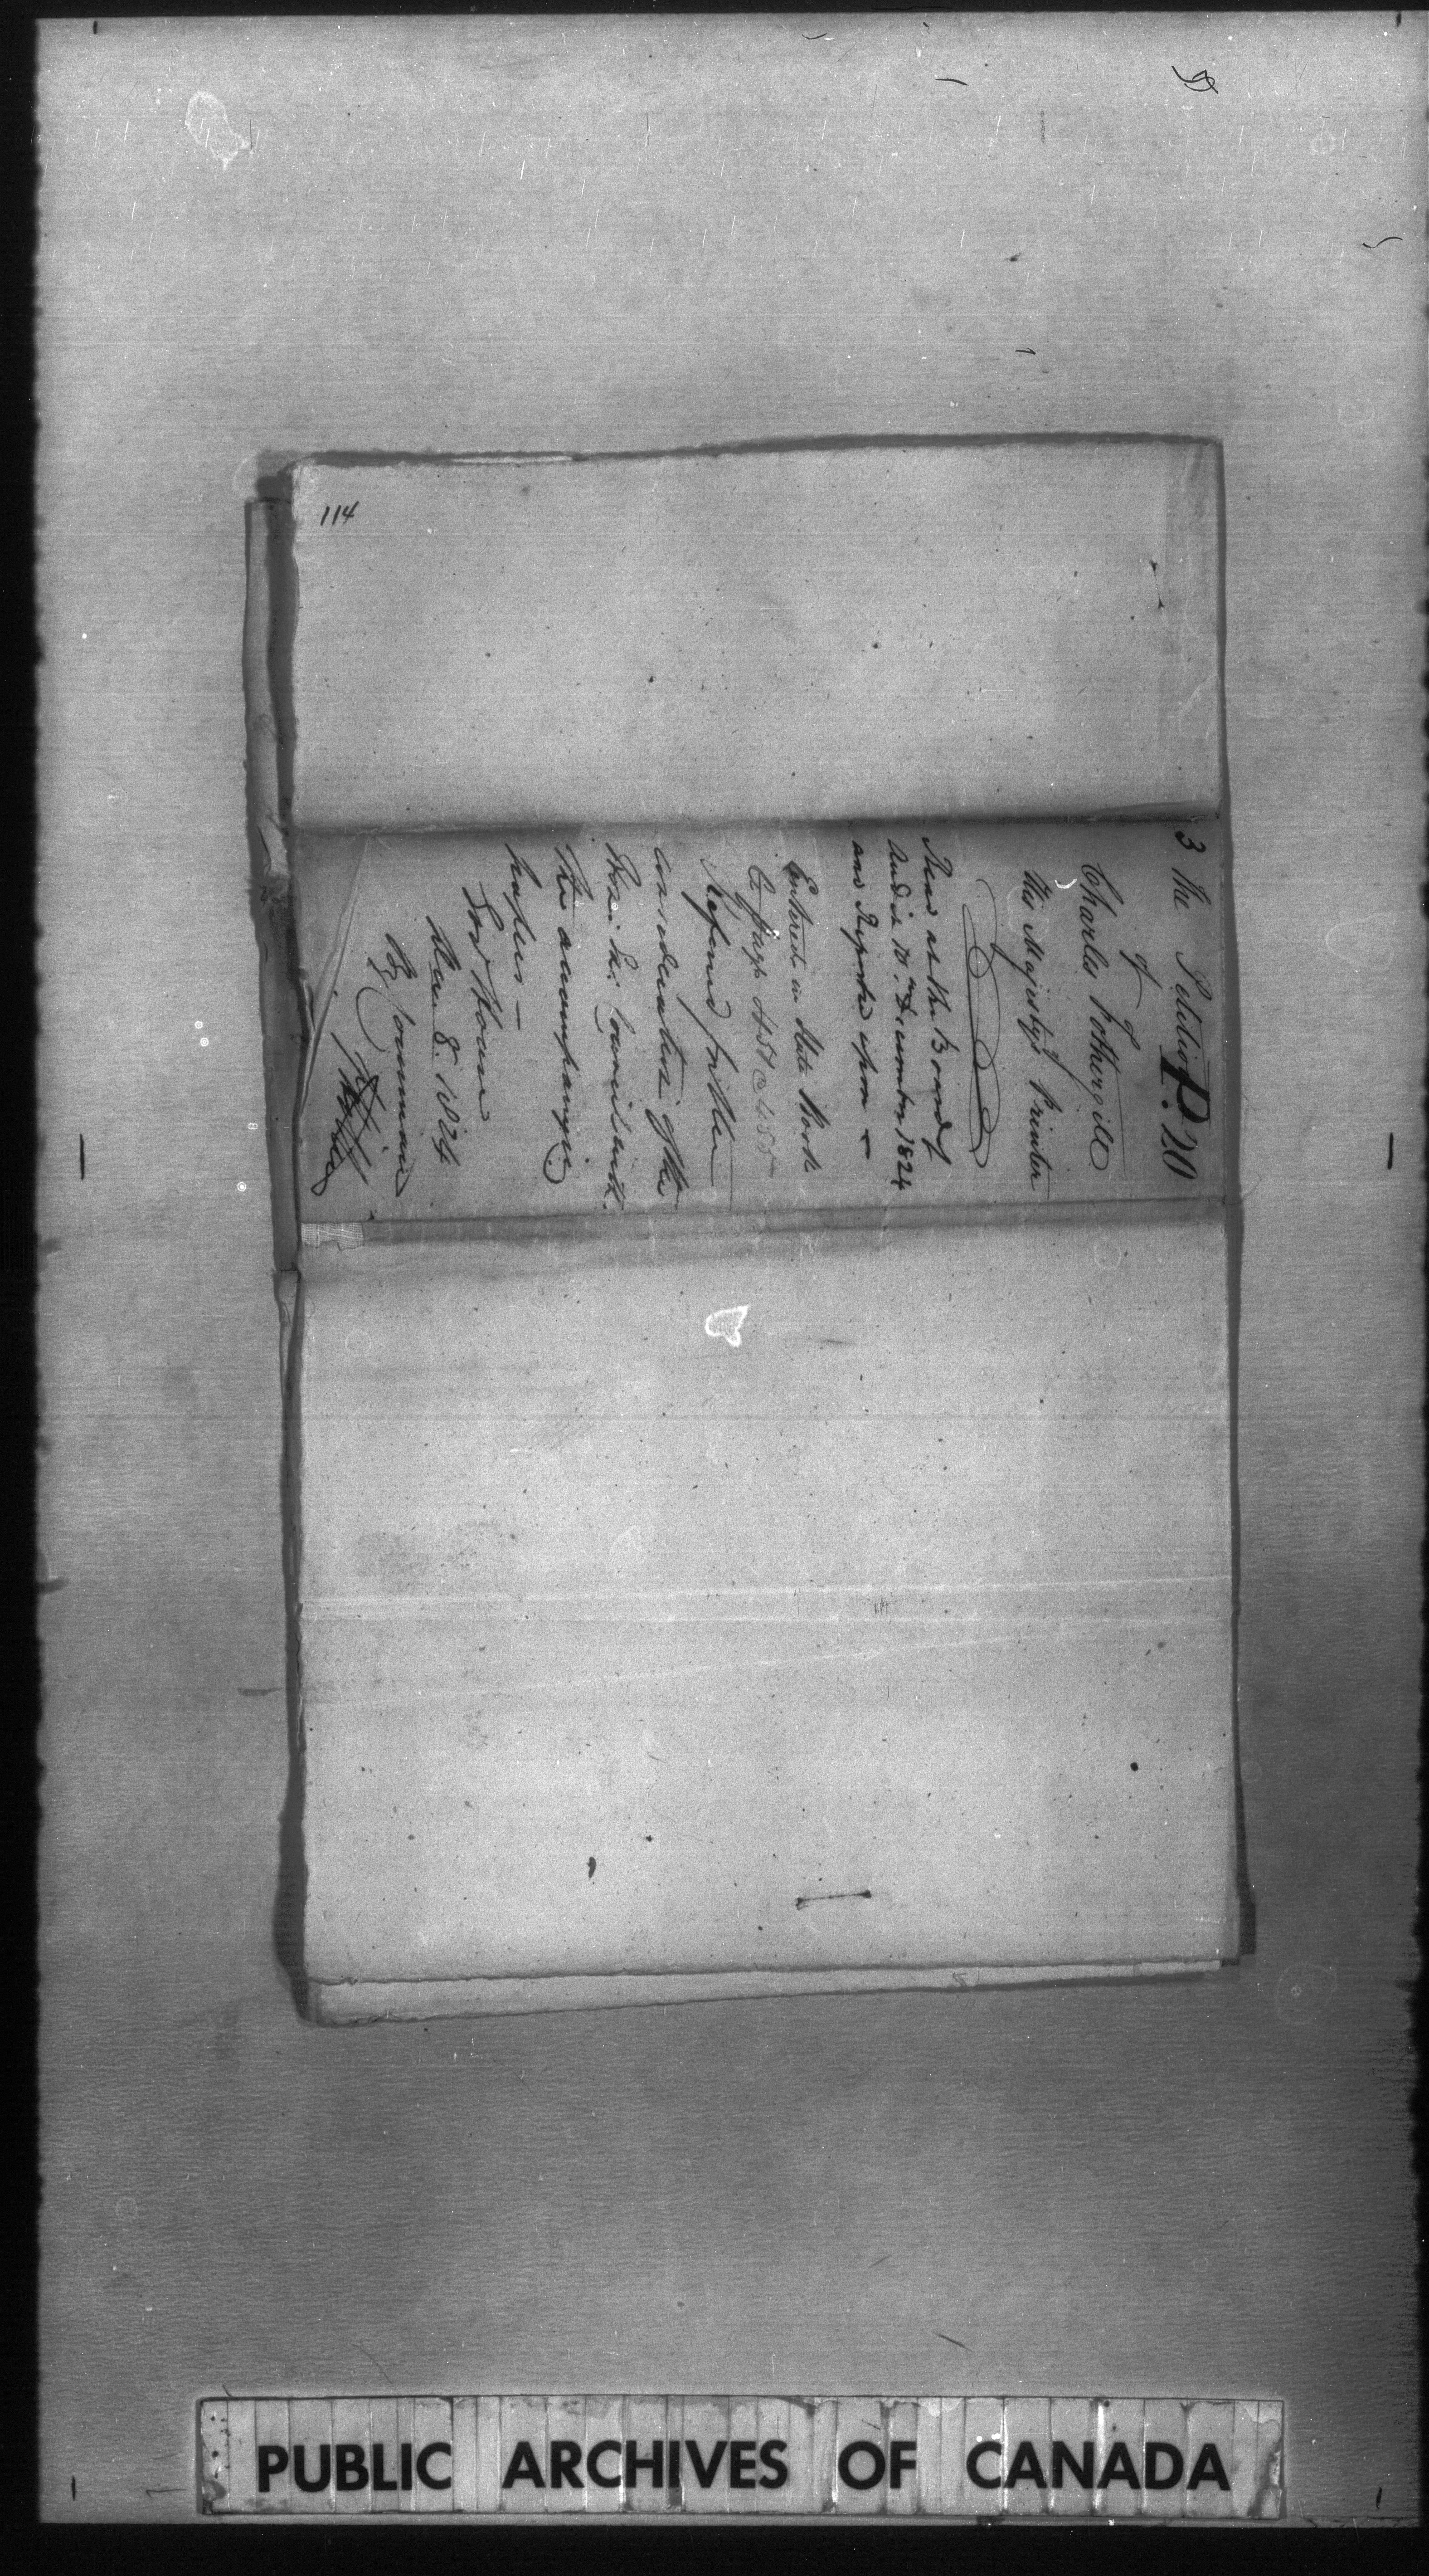 114
3 The Petition P. 20
of
Charles Fothergill
His Majesty's Printer
Read at the Board of
Audit 10th December 1824
and Reported upon
Entered in State Book
G page 454 & 455
Refered for the
consideration of the
Hon. Ex. Council with
the accompanying
papers —
Gov House
Dec 8. 1824
By Command
PUBLIC ARCHIVES OF CANADA